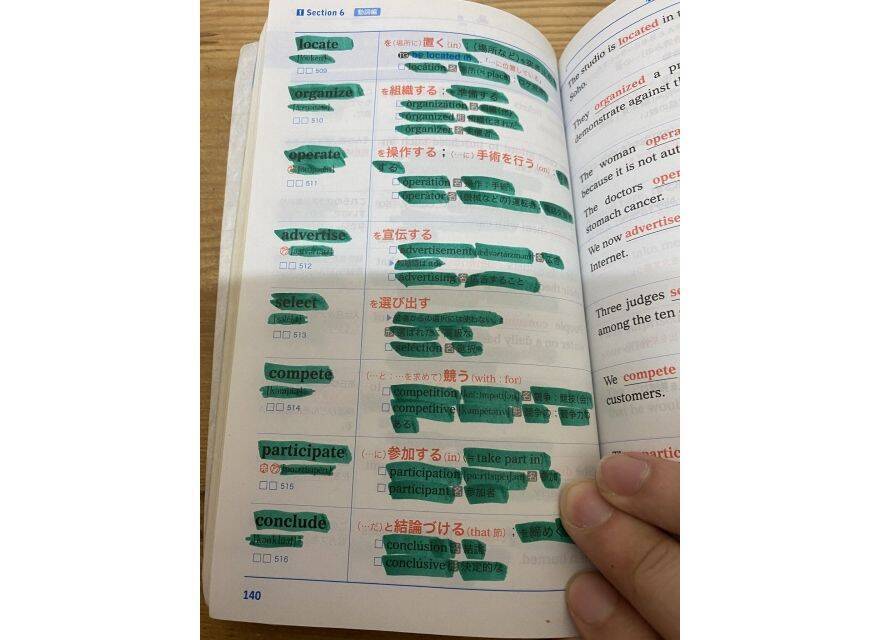 1 Section 6 動詞編
locate
を(場所に)置く(in);(場所など)
be located in 「…に位置している」
location 名 場所(≒place)
509
organize
を組織する;準備する
organization
organized
organizer
510
operate
を操作する;(…に)手術を行う(on)
する
operation 名 操作;手術
operator 名 (機械などの)運転者
511
advertise
を宣伝する
advertisement 名 広告
advertising 名 広告すること
512
select
を選び出す
選ばれた
selection 名 選択
513
compete
(…と;…を求めて)競う(with;for)
competition 名 競争;競技(会)
competitive 競争の;競争力の
ある
514
participate
(…に)参加する(in)(≒take part in)
participation 名 参加
participant 名 参加者
515
conclude
(…だ)と結論づける(that 節);を締め
conclusion 名 結論
conclusive 決定的な
516
140
The studio is located in
Soho.
They organized a
demonstrate against
The woman
because it is not
The doctors
stomach cancer.
We now advertise
Internet.
Three judges
among the ten
We compete
customers.